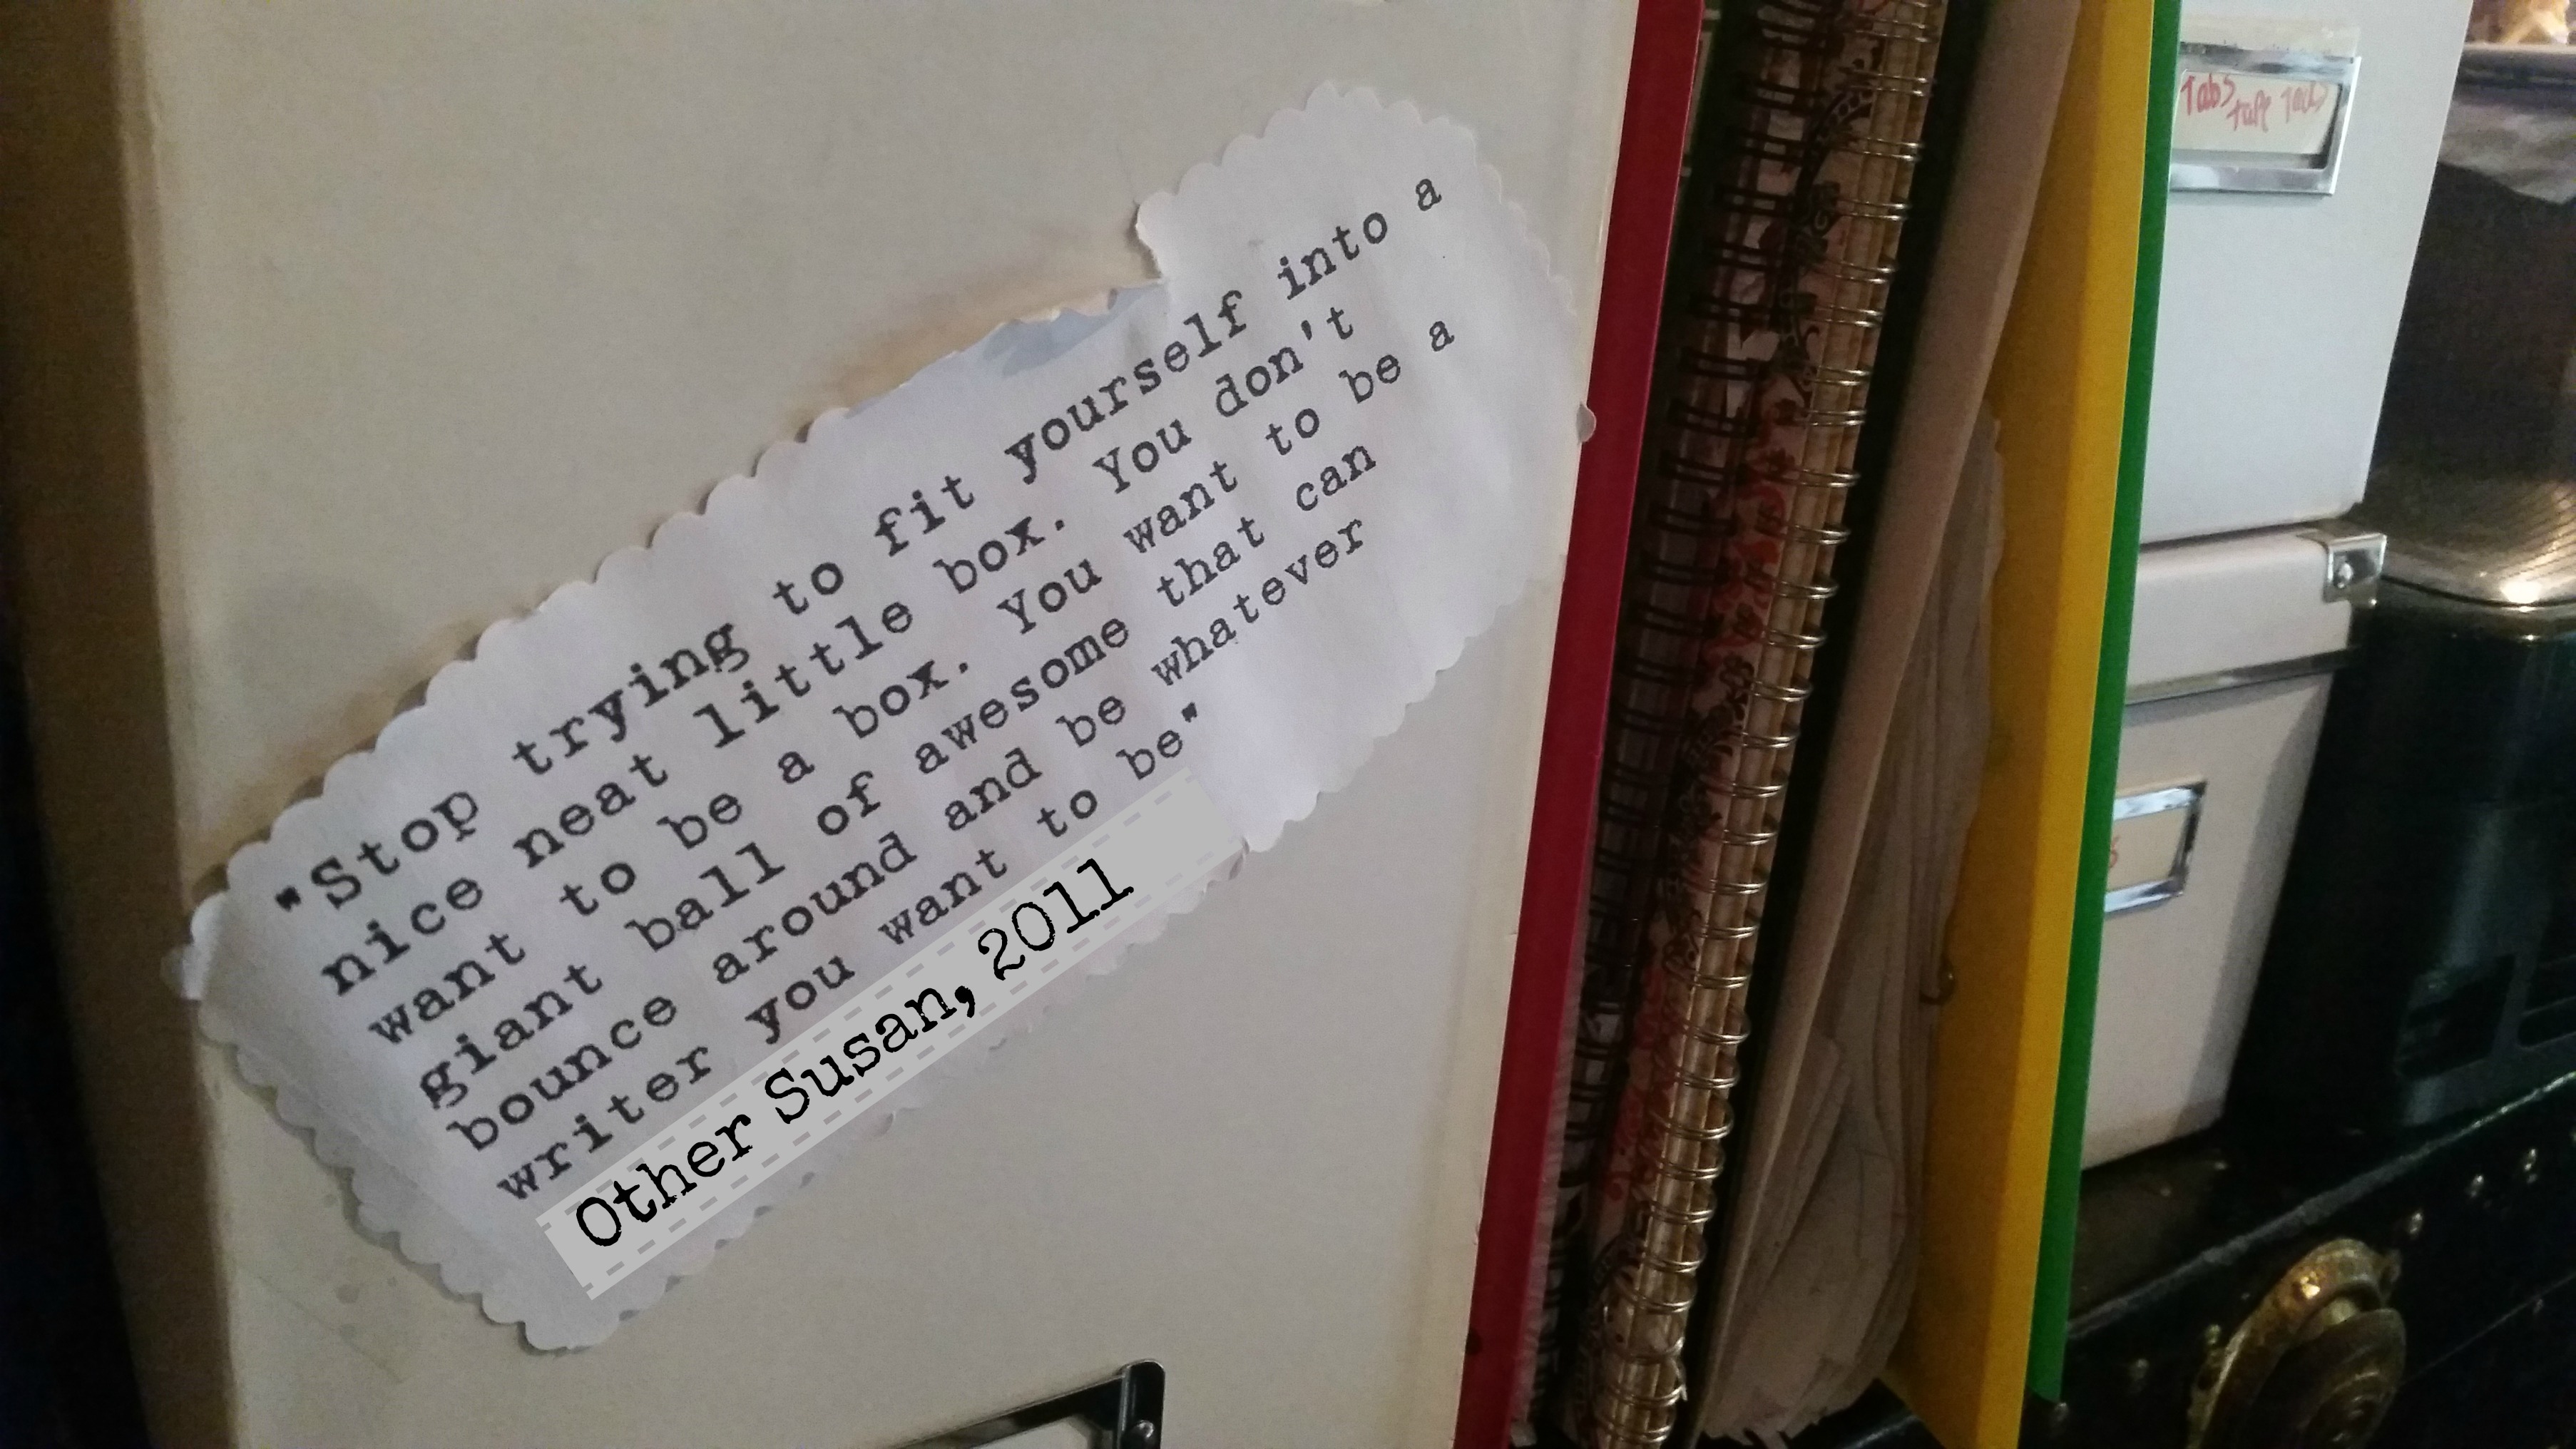 "Stop trying to fit yourself into a
nice neat little box. You don't
want to be a box. You want to be a
giant ball of awesome that can
bounce around and be whatever
writer you want to be"
Other Susan, 2011
Tabs